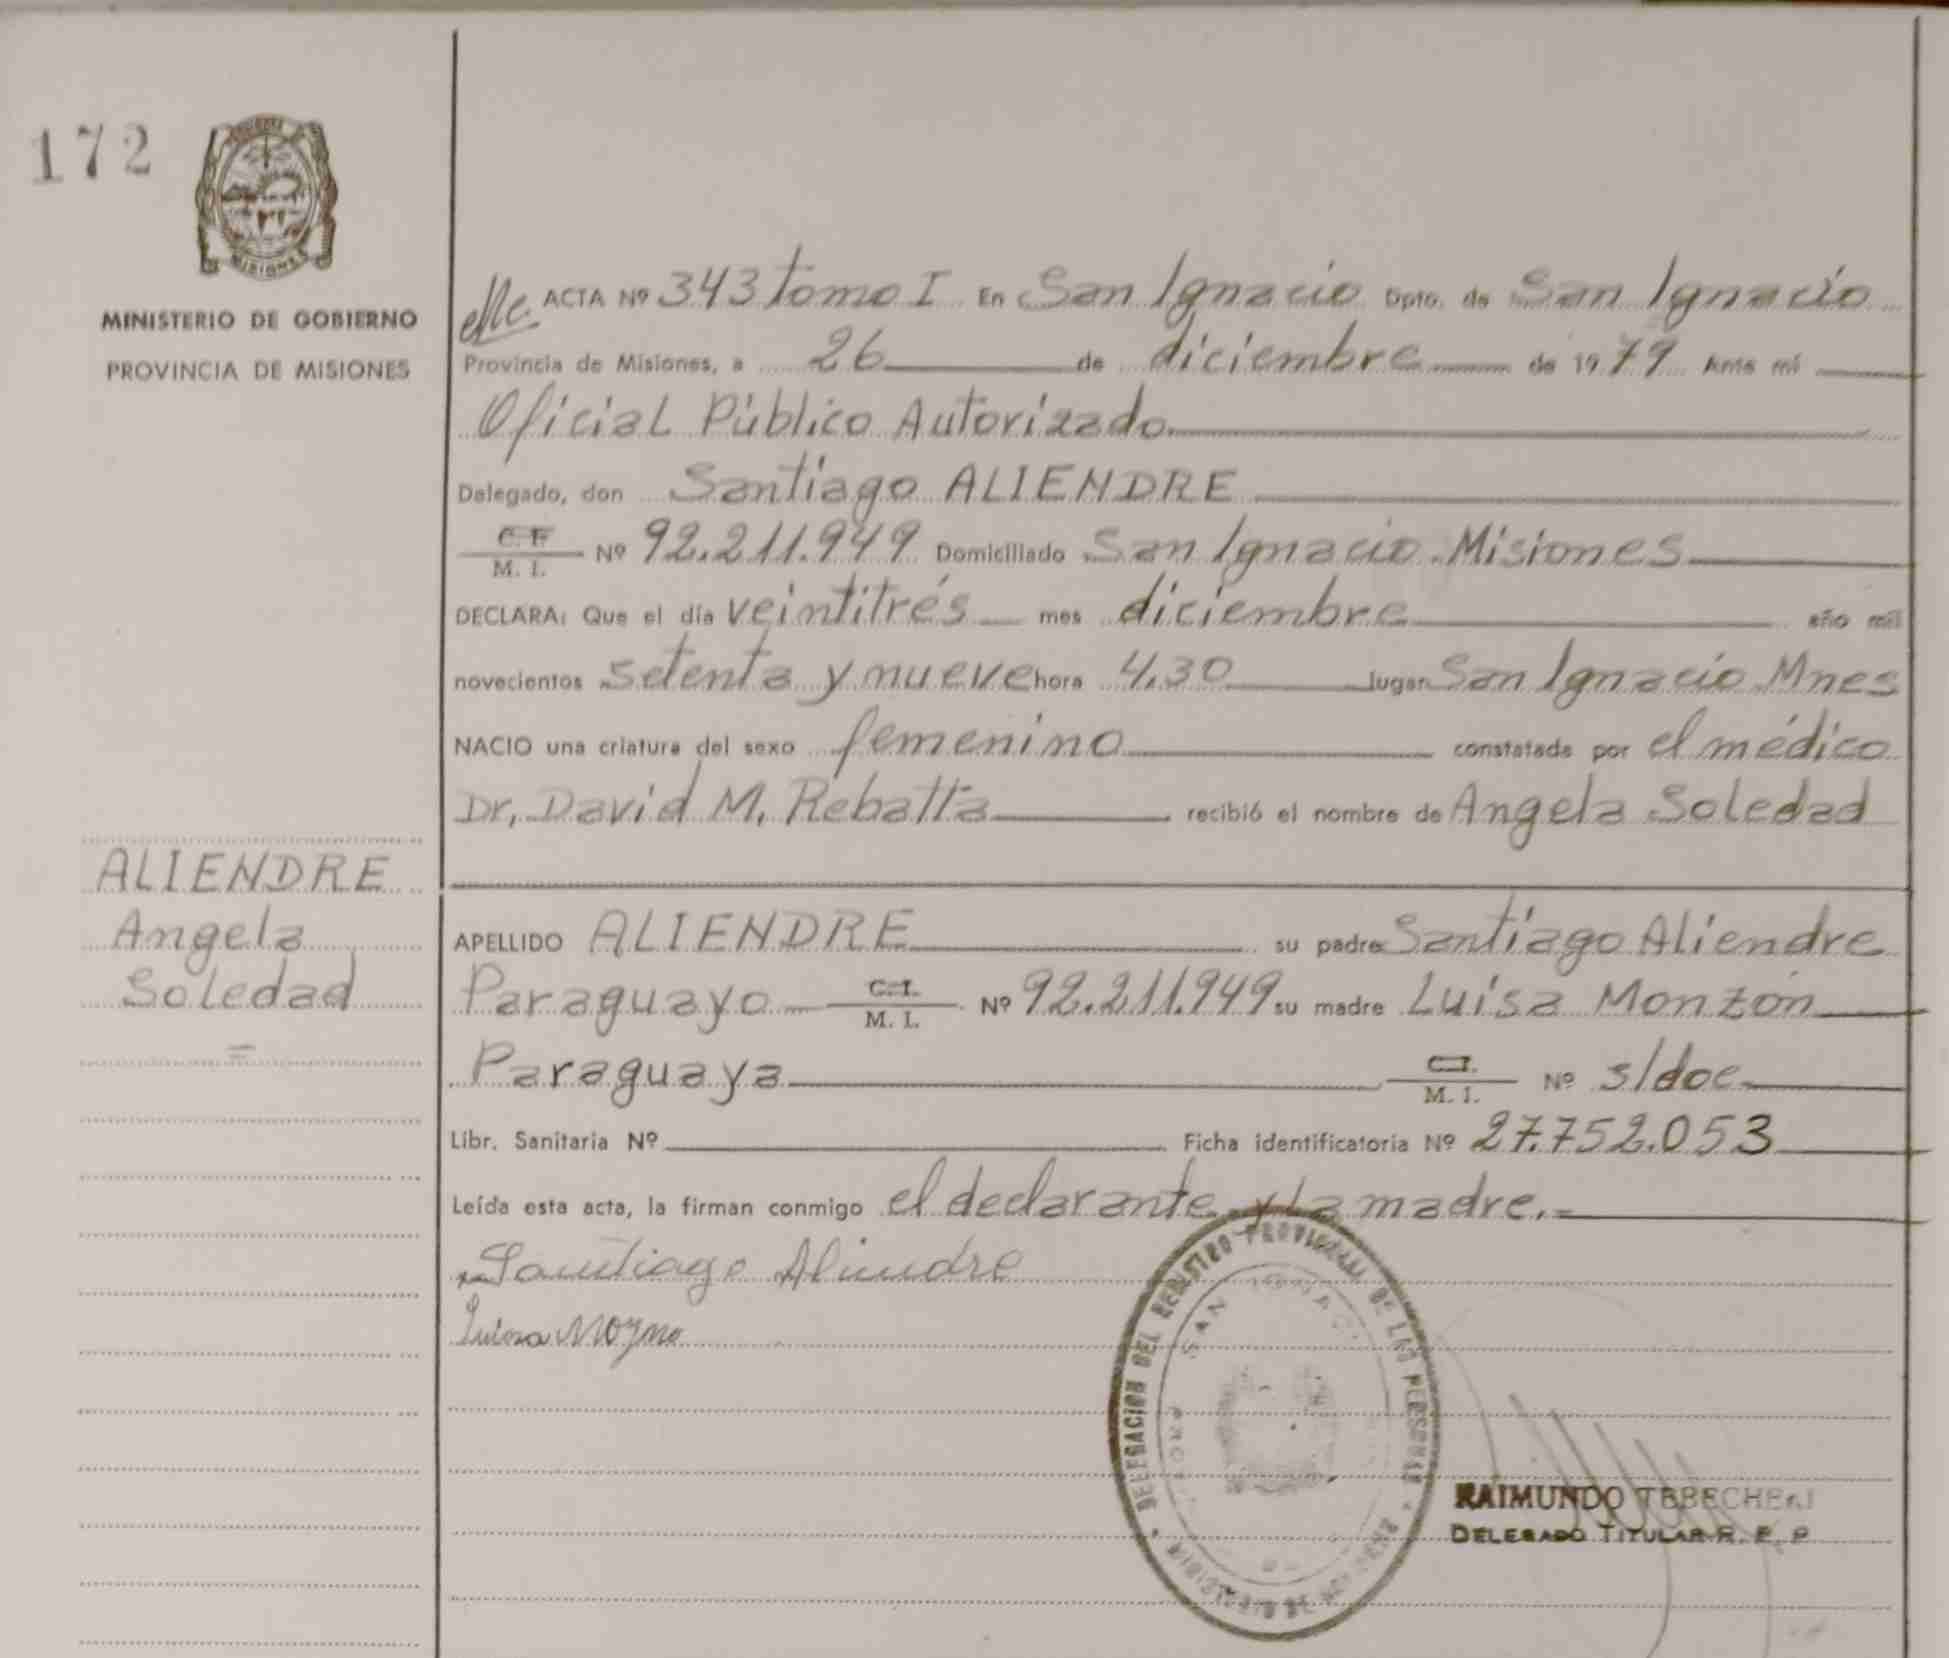 172
MISIONES
MINISTERIO DE GOBIERNO
PROVINCIA DE MISIONES
ACTA Nº 343 tomo I En San Ignacio Dpto. de San Ignacio
Provincia de Misiones, a 26 de diciembre de 1979 Ante mí
Oficial Público Autorizado
Delegado, don Santiago ALIENDRE
C. I.
M. I. Nº 92.211.949 Domiciliado San Ignacio Misiones
DECLARA: Que el día veintitrés mes diciembre año mil
novecientos setenta y nueve hora 4.30 lugar San Ignacio Mnes
NACIO una criatura del sexo femenino constatada por el médico
Dr. David M. Rebatta recibió el nombre de Angela Soledad
ALIENDRE
Angela
Soledad
=
APELLIDO ALIENDRE su padre Santiago Aliendre
Paraguayo C. I. M. I. Nº 92.211.949 su madre Luisa Monzón
Paraguaya C. I. M. I. Nº s/doc
Libr. Sanitaria Nº Ficha identificatoria Nº 27.752.053
Leída esta acta, la firman conmigo el declarante y la madre.=
Santiago Aliendre
Luisa
DELEGACION DEL REGISTRO PROVINCIAL DE LAS PERSONAS
SAN IGNACIO
RAIMUNDO
DELEGADO TITULAR R. P. P.